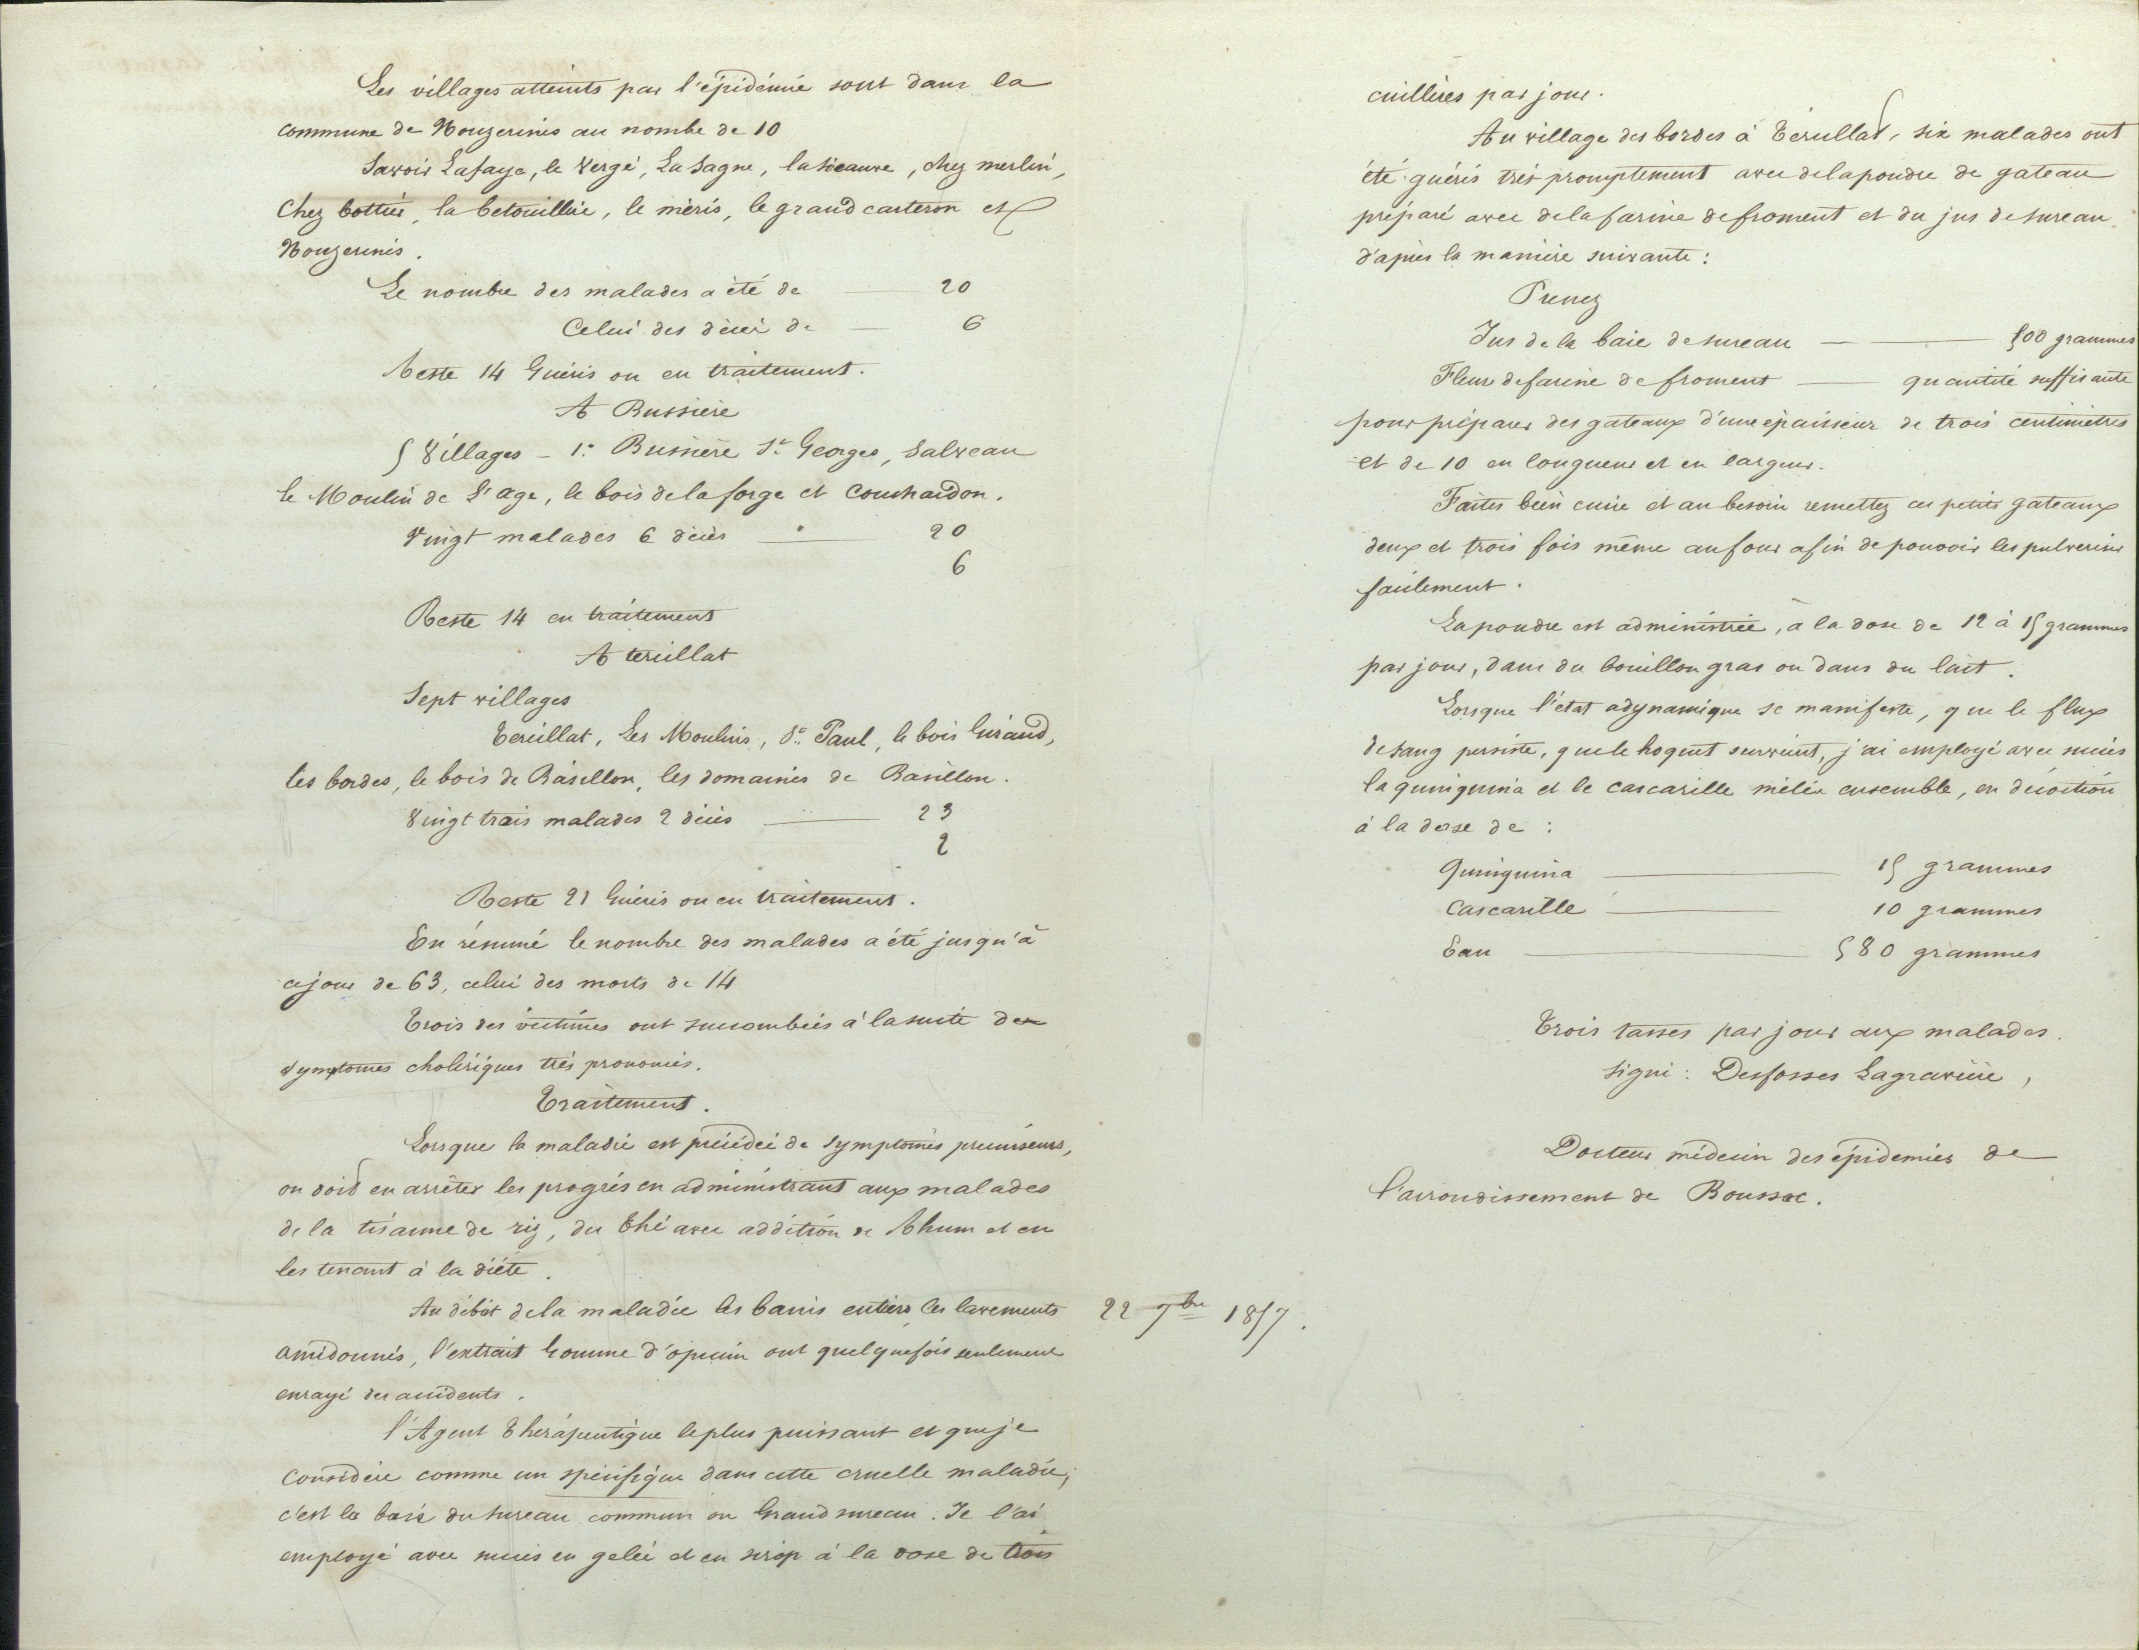 Les villages atteints par l'épidémie sont dans la
commune de Nouzerines au nombe de 10
Savoir Lafaye, le Vergé, La Sagne, la Séeauve, chez merlin,
Chez bottier, la betouillère, le méris, le grand carteron et
Nouzerines.
Le nombre des malades a été de — 20
Celui des décès de — 6
Reste 14 Guéris ou en traitement.
A Bussiere
5 Villages – 1.° Bussière St Georges, Salveau
le Moulin de l'age, le bois de la forge et Couchardon.
Vingt malades 6 décès — 20
6
Reste 14 en traitement
A tercillat
Sept villages
Tercillat, Les Moulins, St Paul, le bois Giraud,
les bordes, le bois de Basillon, les domaines de Basillon.
Vingt trois malades 2 décès — 23
2
Reste 21 Guéris ou en traitement.
En résumé le nombre des malades a été jusqu'à
ce jour de 63, celui des morts de 14
Trois des victimes ont succombées à la suite de
symptomes cholériques très prononcés.
Traitement.
Lorsque la maladie est précédée de symptomes precurseurs,
on doit en arrêter les progrès en administrant aux malades
de la tisanne de riz, du thé avec addition de Rhum et en
les tenant à la diète.
Au début de la maladie les bains entiers, les lavements
amidonnés, l'extrait Gomme d'opium ont quelquefois seulement
enrayé des accidents.
l'Agent Thérapeutique le plus puissant et que je
considère comme un spécifique dans cette cruelle maladie,
c'est la baie du sureau commun ou Grand sureau. Je l'ai
employé avec succès en gelée et en sirop à la dose de trois
22 9bre 1857.
cuillères par jour.
Au village des bordes à Tercillat, six malades ont
été guéris très promptement avec de la poudre de gateau
préparé avec de la farine de froment et du jus de sureau
d'après la manière suivante :
Prenez
Jus de la baie de sureau — 500 grammes
Fleur de farine de froment — quantité suffisante
pour préparer des gateaux d'une épaisseur de trois centimètres
et de 10 en longueur et en largeur.
Faites bien cuire et au besoin remettez ces petits gateaux
deux et trois fois même au four afin de pouvoir les pulveriser
facilement.
La poudre est administrée, à la dose de 12 à 15 grammes
par jour, dans du bouillon gras ou dans du lait.
Lorsque l'état adynamique se manifeste, que le flux
de sang persiste, que le hoquet survient, j'ai employé avec succès
la quinquina et le cascarille mêlés ensemble, en décoction
à la dose de :
Quinquina — 15 grammes
Cascarille — 10 grammes
Eau — 580 grammes
Trois tasses par jour aux malades.
Signé : Desfosses Lagravière,
Docteur médecin des épidemies de
l'arrondissement de Boussac.